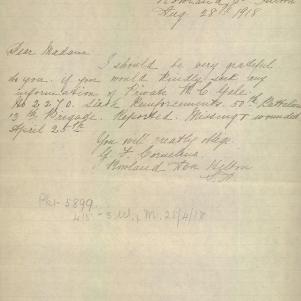 Aug 28th 1918
Dear Madame
I should be very grateful
to you. if you would kindly seek any
information of Private W. C. Gale
No 2270. Sixth Reinforcements. 50th Battalion
13th Brigade. Reported. Missing & wounded
April 25th
You will greatly oblige
G F Cornelius
Rowland
5899
25/4/18